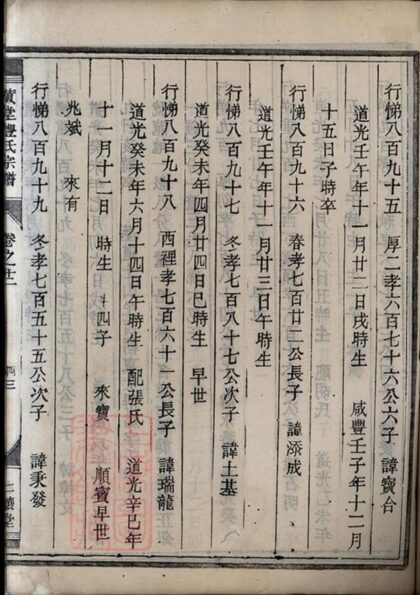 行悌八百九十五 厚二孝七百七十六公六子 諱寶台
道光壬午年十一月廿二日戌時生 咸豐壬子年十二月
十五日子時卒
行悌八百九十六 春孝七百廿二公長子 諱添成
道光壬午年十一月廿三日午時生
行悌八百九十七 冬孝七百八十七公次子 諱土基
道光癸未年四月廿四日巳時生 早世
行悌八百九十八 西裡孝七百六十一公長子 諱瑞龍
道光癸未年六月十四日午時生 配張氏 道光辛巳年
十一月十二日 時生 四子 來寶 順寶早世
兆斌 來有
行悌八百九十九 冬孝七百五十五公次子 諱秉發
氏宗譜 卷之 四三 堂